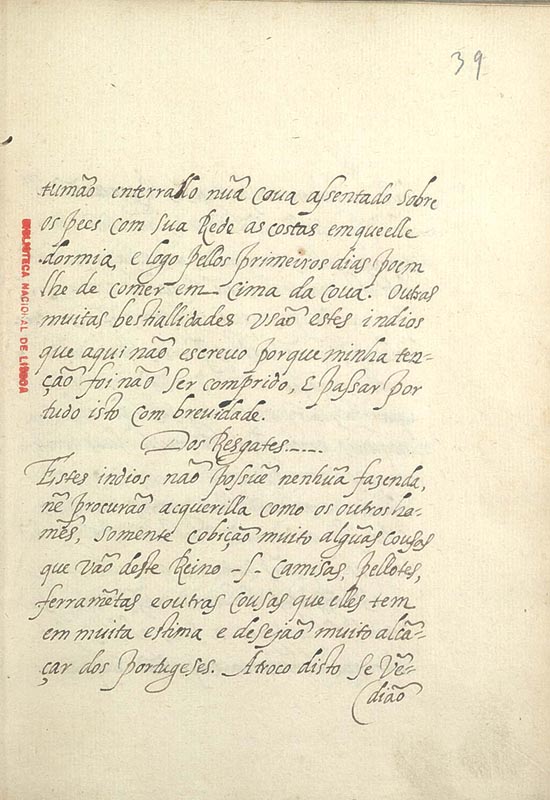 39
tumão enterrallo nũa cova assentado sobre
os pees com sua Rede as costas em que elle
dormia, e logo pellos primeiros dias poem
lhe de comer em cima da cova. Outras
muitas bestiallidades usão estes indios
que aqui não escrevo porque minha ten=
ção foi não ser comprido, E passar por
tudo isto com brevidade.
Dos Resgates.....
Estes indios não possuẽ nenhũa fazenda,
nẽ procurão acquerilla como os outros ho-
mẽs, somente cobição muito algũas cousas
que vão deste Reino -s- camisas, pellotes,
ferramẽtas e outras cousas que elles tem
em muita estima e desejão muito alcã=
çar dos portugeses. A troco disto se vẽ=
dião
BIBLIOTECA NACIONAL DE LISBOA